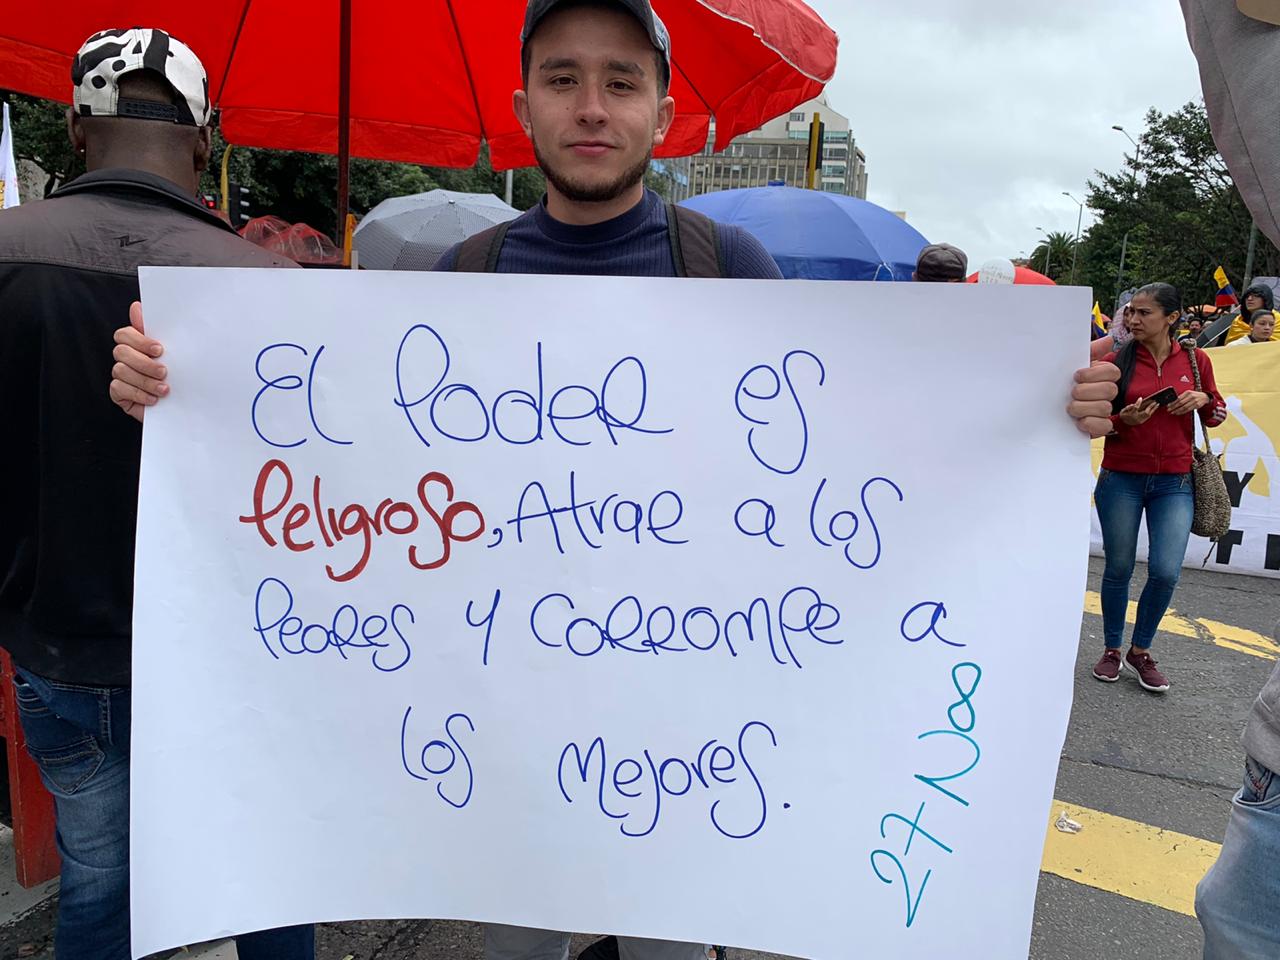 El Poder es
Peligroso, Atrae a los
Peores y Corrompe a
los Mejores.
27+Nov
Y